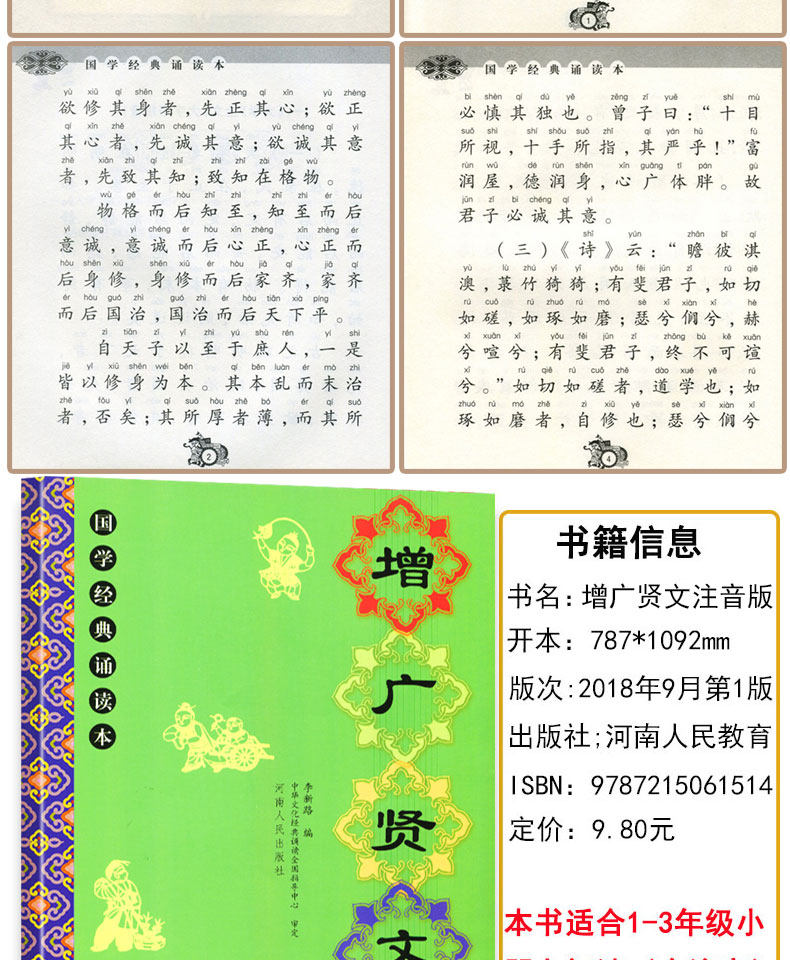 1
国学经典诵读本
yù xiū qí shēn zhě xiān zhèng qí xīn yù zhèng
欲修其身者，先正其心；欲正
qí xīn zhě xiān chéng qí yì yù chéng qí yì
其心者，先诚其意；欲诚其意
zhě xiān zhì qí zhī zhì zhī zài gé wù
者，先致其知；致知在格物。
wù gé ér hòu zhī zhì zhī zhì ér hòu
物格而后知至，知至而后
yì chéng yì chéng ér hòu xīn zhèng xīn zhèng ér
意诚，意诚而后心正，心正而
hòu shēn xiū shēn xiū ér hòu jiā qí jiā qí
后身修，身修而后家齐，家齐
ér hòu guó zhì guó zhì ér hòu tiān xià píng
而后国治，国治而后天下平。
zì tiān zǐ yǐ zhì yú shù rén yī shì
自天子以至于庶人，一是
jiē yǐ xiū shēn wéi běn qí běn luàn ér mò zhì
皆以修身为本。其本乱而末治
zhě fǒu yǐ qí suǒ hòu zhě bó ér qí suǒ
者，否矣；其所厚者薄，而其所
2
国学经典诵读本
bì shèn qí dú yě zēng zǐ yuē shí mù
必慎其独也。曾子曰：“十目
suǒ shì shí shǒu suǒ zhǐ qí yán hū fù
所视，十手所指，其严乎！”富
rùn wū dé rùn shēn xīn guǎng tǐ pán gù
润屋，德润身，心广体胖。故
jūn zǐ bì chéng qí yì
君子必诚其意。
shī yún zhān bǐ qí
（三）《诗》云：“瞻彼淇
yù lù zhú yī yī yǒu fěi jūn zǐ rú qiē
澳，菉竹猗猗；有斐君子，如切
rú cuō rú zhuó rú mó sè xī xiàn xī hè
如磋，如琢如磨；瑟兮僩兮，赫
xī xuān xī yǒu fěi jūn zǐ zhōng bù kě xuān
兮喧兮；有斐君子，终不可諠
xī rú qiē rú cuō zhě dào xué yě rú
兮。”如切如磋者，道学也；如
zhuó rú mó zhě zì xiū yě sè xī xiàn xī
琢如磨者，自修也；瑟兮僩兮
4
国学经典诵读本
增广贤文
李新路 编
中华文化经典诵读全国指导中心 审定
河南人民出版社
书籍信息
书名：增广贤文注音版
开本：787*1092mm
版次:2018年9月第1版
出版社;河南人民教育
ISBN：9787215061514
定价：9.80元
本书适合1-3年级小